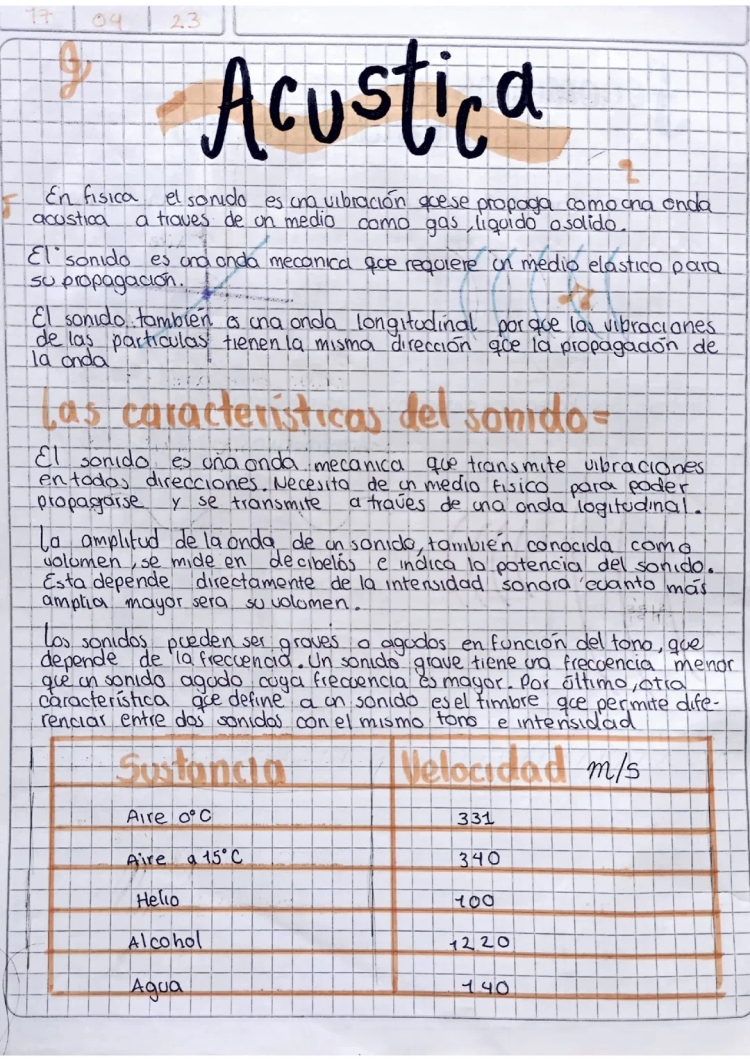 17 04 23
Acustica
En fisica el sonido es una vibración que se propaga como una onda
acustica a traves de un medio como gas, liquido o solido.
El sonido es una onda mecanica que requiere un medio elastico para
su propagación.
El sonido también es una onda longitudinal porque las vibraciones
de las particulas tienen la misma dirección que la propagación de
la onda
Las características del sonido=
El sonido es una onda mecanica que transmite vibraciones
en todas direcciones. Necesita de un medio fisico para poder
propagarse y se transmite a través de una onda logitudinal.
La amplitud de la onda de un sonido, también conocida como
volumen, se mide en decibelos e indica la potencia del sonido.
Esta depende directamente de la intensidad sonora cuanto más
amplia mayor sera su volumen.
Los sonidos pueden ser graves o agudos en función del tono, que
depende de la frecuencia. Un sonido grave tiene una frecuencia menor
que un sonido agudo cuya frecuencia es mayor. Por último, otra
característica que define a un sonido es el timbre que permite dife-
renciar entre dos sonidos con el mismo tono e intensidad
Sustancia Velocidad m/s
Aire 0°C 331
Aire a 15°C 340
Helio 100
Alcohol 1220
Agua 140